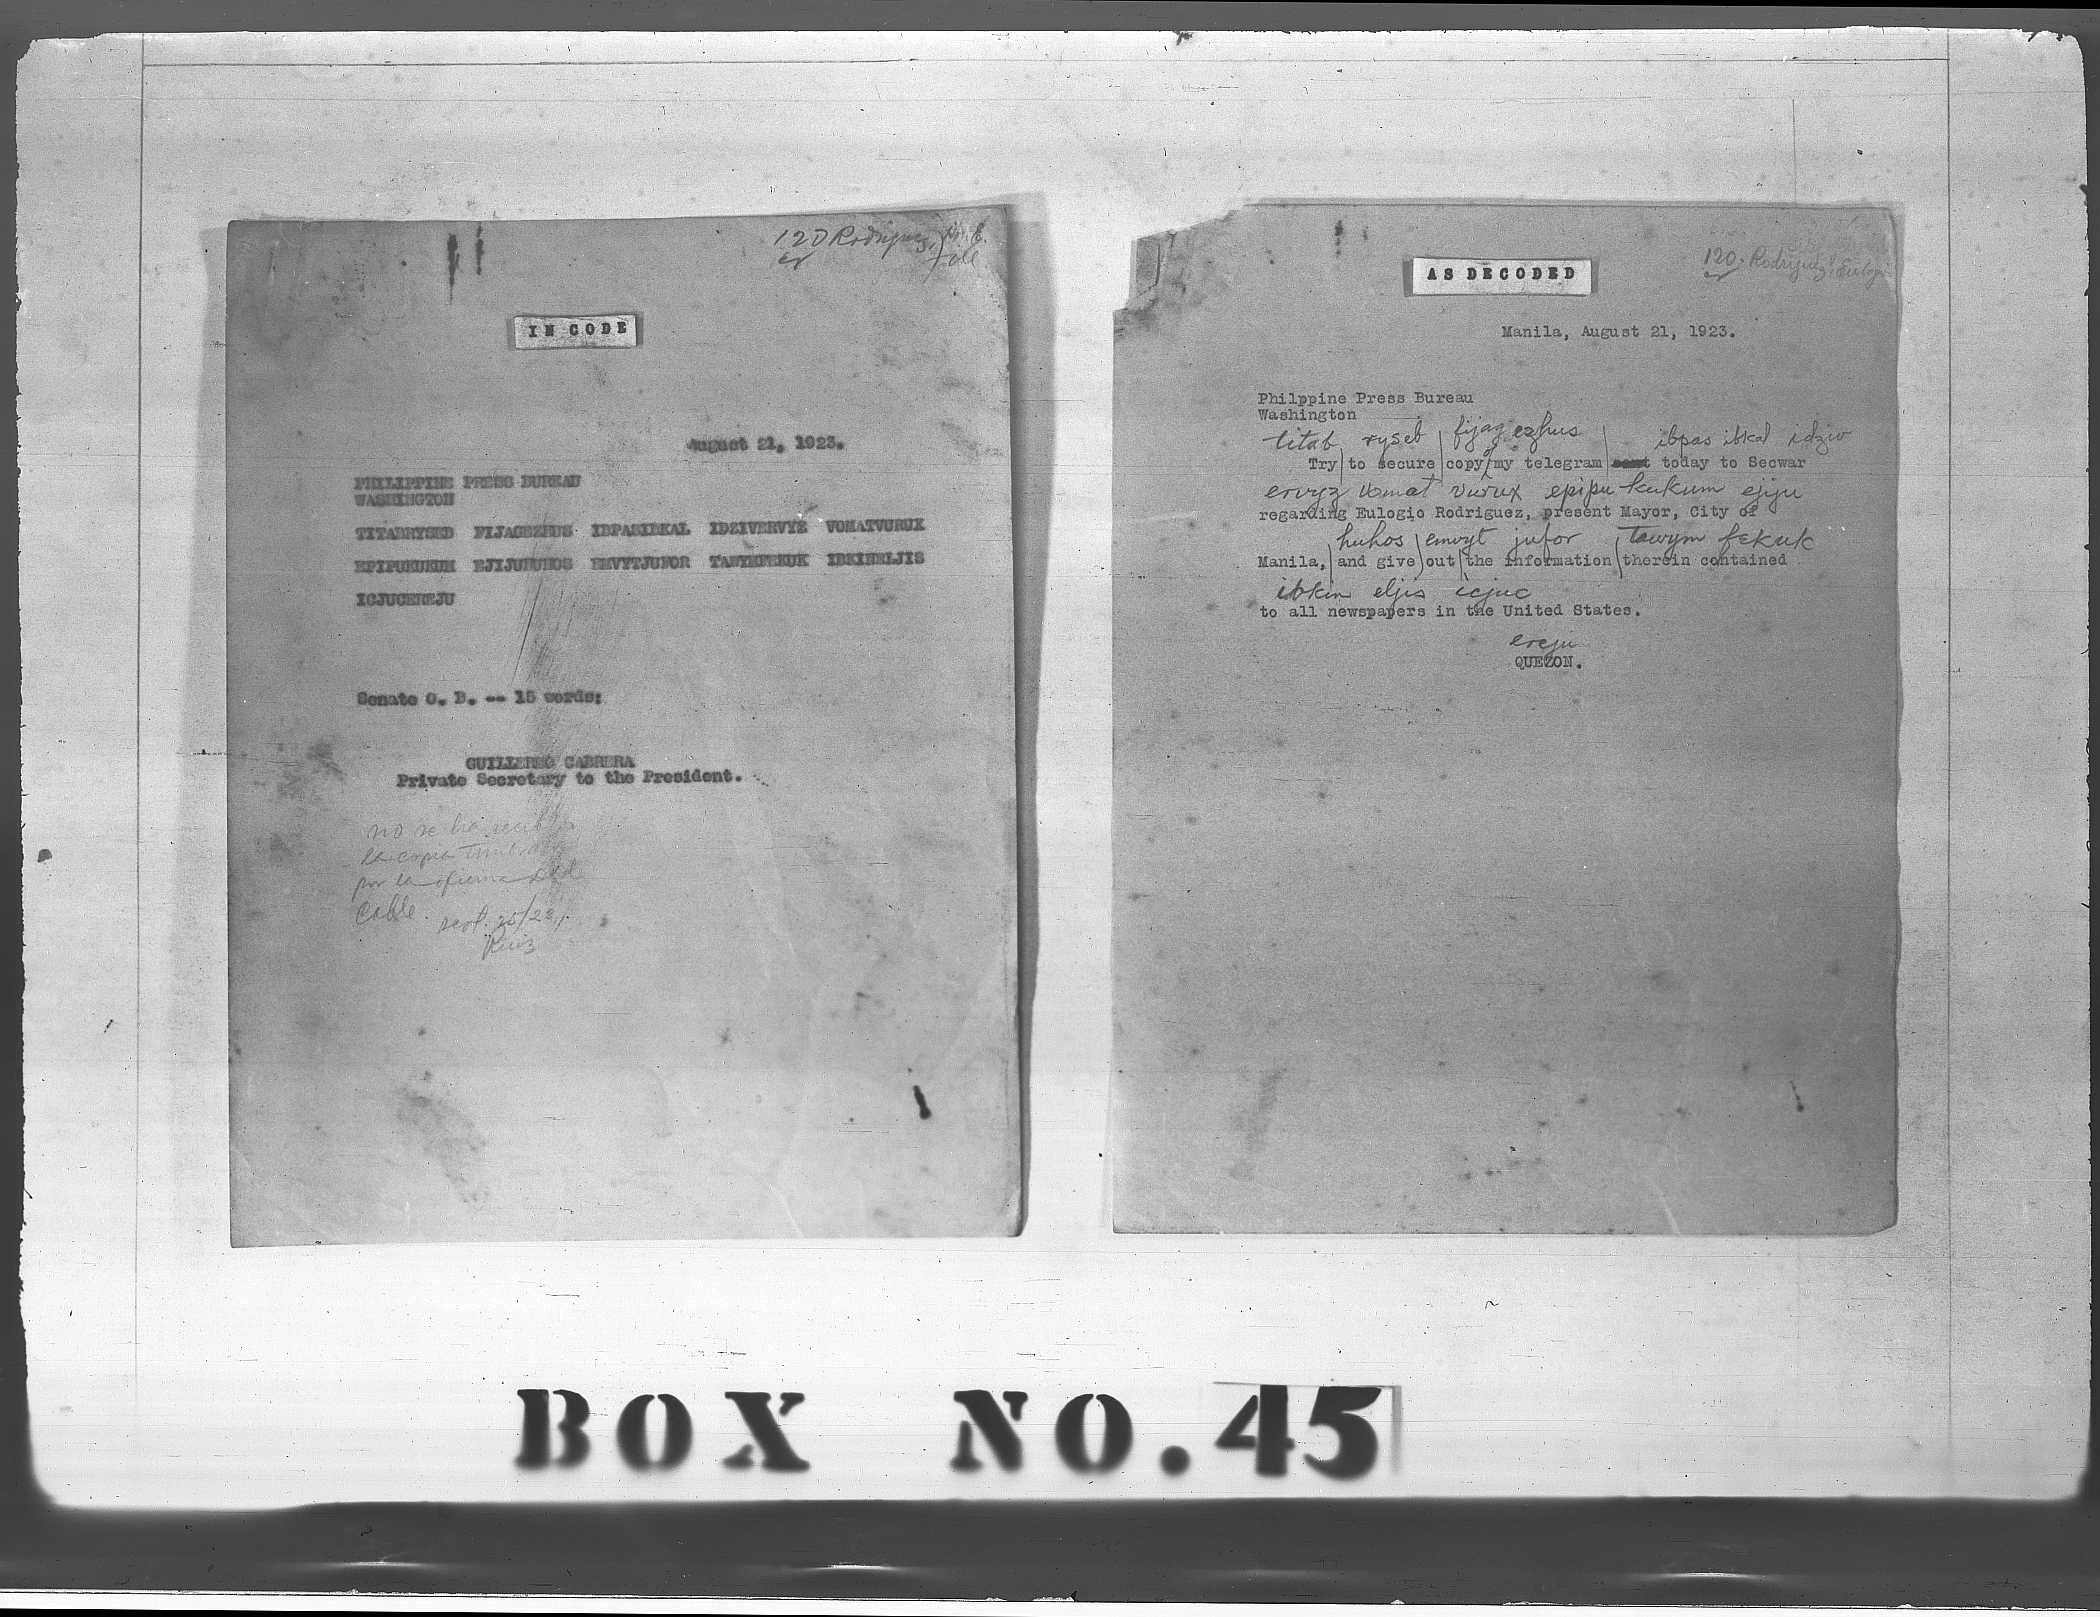 120 Rodriguez,
IN CODE
August 21, 1923.
PHILIPPINE PRESS BUREAU
WASHINGTON
TITABRYSED FIJAGEZHUS IBPASIBKAL IDZIVERVYZ VOMATVURUX
EPIPUKUKUM EJIJUHUHOS EMVYTJUFOR TAWYMFEKUK IBKINELJIS
ICJUCEREJU
Senate O. B. -- 15 words:
GUILLERMO CABRERA
Private Secretary to the President.
no se ha recib
la copia
por la oficina del
Cable. Sept. 25/23,
Ruiz
120. Rodriguez, Eulogio
AS DECODED
Manila, August 21, 1923.
Philppine Press Bureau
Washington
titab ryseb fijag ezhus ibpas ibkal idziv
Try to secure copy of my telegram sent today to Secwar
ervyz vomat vurux epipu kukum ejiju
regarding Eulogio Rodriguez, present Mayor, City of
huhos emvyt jufor tawym fekuk
Manila, and give out the information therein contained
ibkin eljis icjuc
to all newspapers in the United States.
ereju
QUEZON.
BOX NO. 45